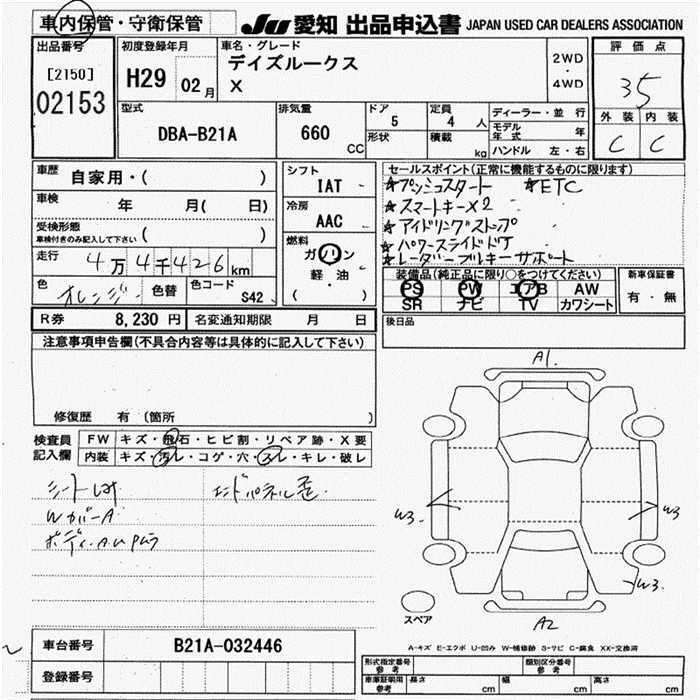 車内保管・守衛保管
JU 愛知 出品申込書 JAPAN USED CAR DEALERS ASSOCIATION
出品番号
[2150]
02153
初度登録年月
H29 02月
車名・グレード
デイズルークス
X
2WD
・
4WD
評価点
3.5
外装 内装
C C
型式
DBA-B21A
排気量
660 CC
ドア
5
形状
定員
4 人
積載
kg
ディーラー・並行
モデル年式 年
ハンドル 左・右
車歴
自家用・( )
車検
年 月( 日)
受検形態
車検付きのみ記入して下さい ( )
走行
4万4千426km
色
オレンジ
色替
色コード
S42
シフト
IAT
冷房
AAC
燃料
ガソリン
軽・油
( )
セールスポイント(正常に機能するものに限ります)
★プッシュスタート ★ETC
★スマートキー×2
★アイドリングストップ
★パワースライドドア
★レーダーブレーキサポート
装備品(純正品に限り○をつけてください)
PS PW エアB AW
SR ナビ TV カワシート
新車保証書
有・無
R券 8,230円 名変通知期限 月 日
後日品
注意事項申告欄(不具合内容等は具体的に記入して下さい)
修復歴 有 (箇所 )
検査員記入欄
FW キズ・飛石・ヒビ割・リペア跡・X要
内装 キズ・汚レ・コゲ・穴・スレ・キレ・破レ
エンドパネル歪
WカバーA
A1.
W3.
W3
W3.
A2
スペア
A-キズ E-エクボ U-凹み W-補修跡 S-サビ C-腐食 XX-交換済
車台番号 B21A-032446
登録番号
形式指定番号 参考
類別区分番号 参考
車庫証明用 参考 長さ cm 幅 cm 高さ cm